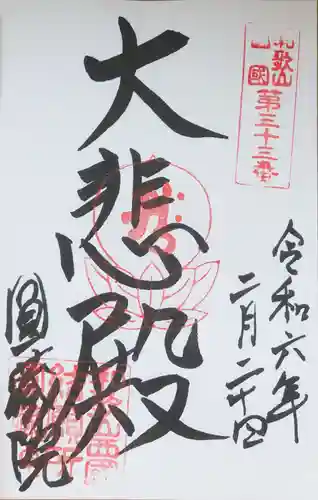 和歌山
一國
第三十三番
令和六年
二月二十四
大悲殿
圓蔵院